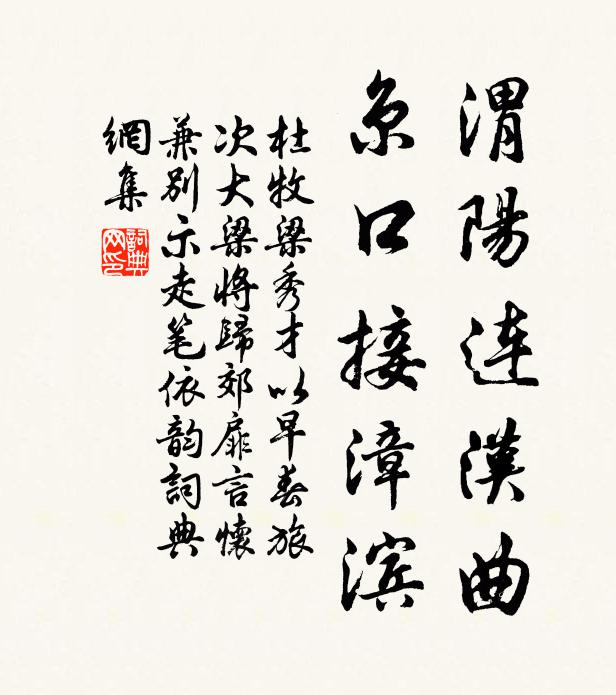 渭陽連漢曲
京口接漳滨
杜牧梁秀才以早春旅
次大梁將歸郊扉言懷
兼别示走笔依韵詞典
網集
詞典
网印